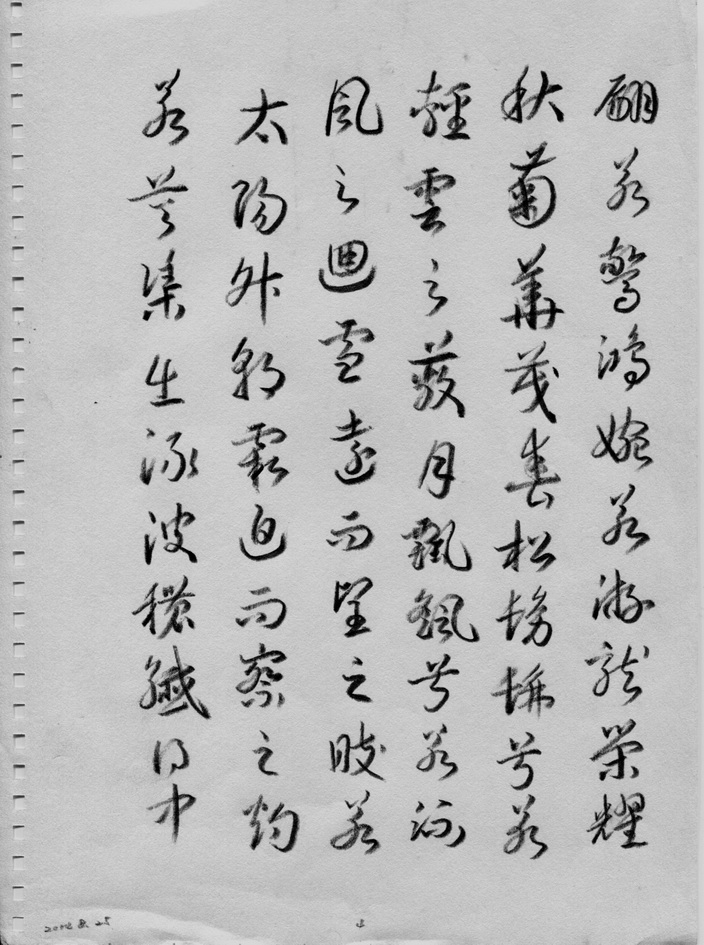 翩若驚鴻婉若游龍榮耀
秋菊華茂春松髣髴兮若
輕雲之蔽月飄颻兮若流
風之迴雪遠而望之皎若
太陽升朝霞迫而察之灼
若芙蕖出淥波穠纖得中
2014 8. 25